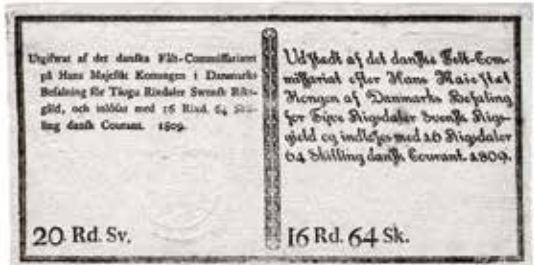 Utgifwat af det danska Fält-Commissariatet
på Hans Majestät Konungen i Danmarks
Befalning för Tiugu Rixdaler Swensk Riks-
gäld, och inlöses med 16 Rixd. 64 Skil-
ling dansk Courant. 1809.
20 Rd. Sv.
Udstædt af det danske Felt-Com-
missariat efter Hans Maiestæt
Kongen af Danmarks Befaling
for Tyve Rigsdaler Svensk Rigs-
gield og indløses med 16 Rigsdaler
64 Skilling dansk Courant. 1809.
16 Rd. 64 Sk.